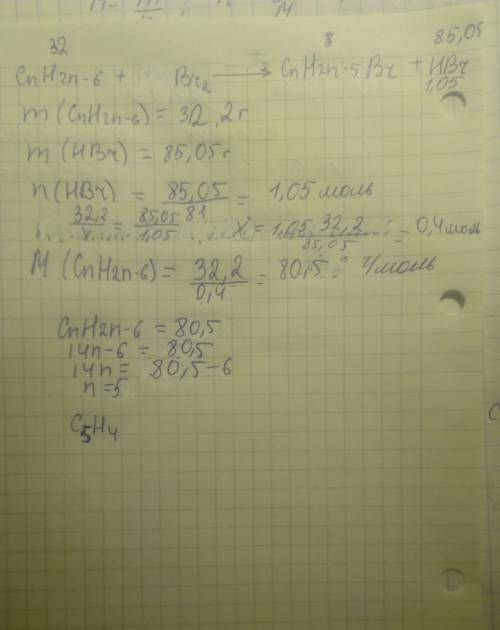 32 8 85,05
CnH2n-6 + Br2 → CnH2n-5 Br + HBr
1,05
m (CnH2n-6) = 32,2 г
m (HBr) = 85,05 г
n (HBr) = 85,05 / 81 = 1,05 моль
32,2 / x = 85,05 / 1,05 x = 1,05 · 32,2 / 85,05 = 0,4 моль
M (CnH2n-6) = 32,2 / 0,4 = 80,5 г/моль
CnH2n-6 = 80,5
14n-6 = 80,5
14n = 80,5-6
n = 5
C5H4